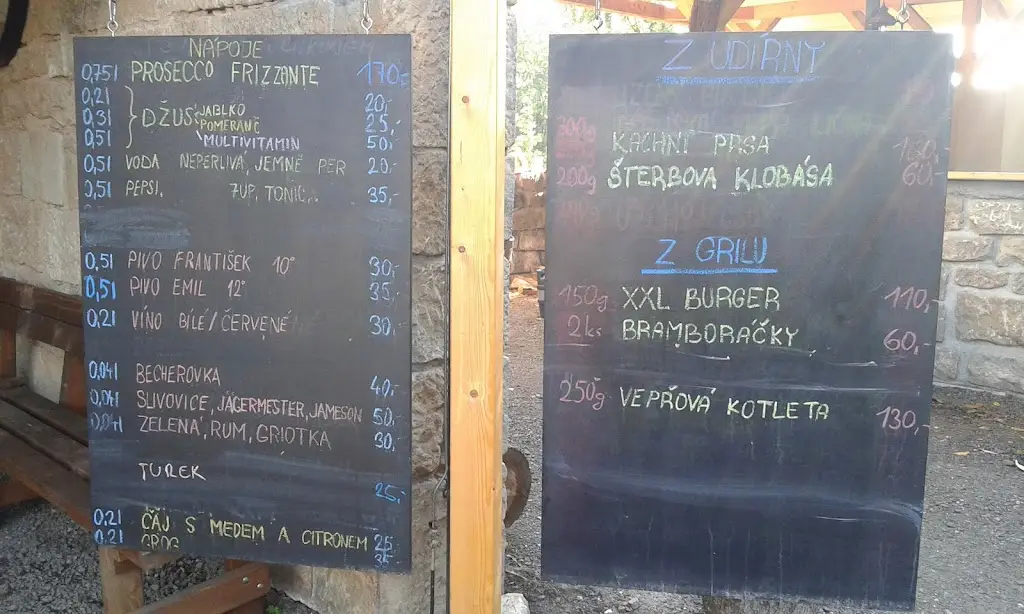 NÁPOJE
0,75l PROSECCO FRIZZANTE 170,-
0,2l JABLKO 20,-
0,3l DŽUS POMERANČ 25,-
0,5l MULTIVITAMIN 50,-
0,5l VODA NEPERLIVÁ, JEMNĚ PER 20,-
0,5l PEPSI, 7UP, TONIC,. 35,-
0,5l PIVO FRANTIŠEK 10° 30,-
0,5l PIVO EMIL 12° 35,-
0,2l VÍNO BÍLÉ/ČERVENÉ 30,-
0,04l BECHEROVKA 40,-
0,04l SLIVOVICE, JÄGERMESTER, JAMESON 50,-
0,04l ZELENÁ, RUM, GRIOTKA 30,-
TUREK 25,-
0,2l ČAJ S MEDEM A CITRONEM 25
0,2l GROG 35
Z UDÍRNY
KACHNÍ PRSA
200g ŠTERBOVA KLOBÁSA 60,-
Z GRILU
150g XXL BURGER 110,-
2ks BRAMBORAČKY 60,-
250g VEPŘOVÁ KOTLETA 130,-